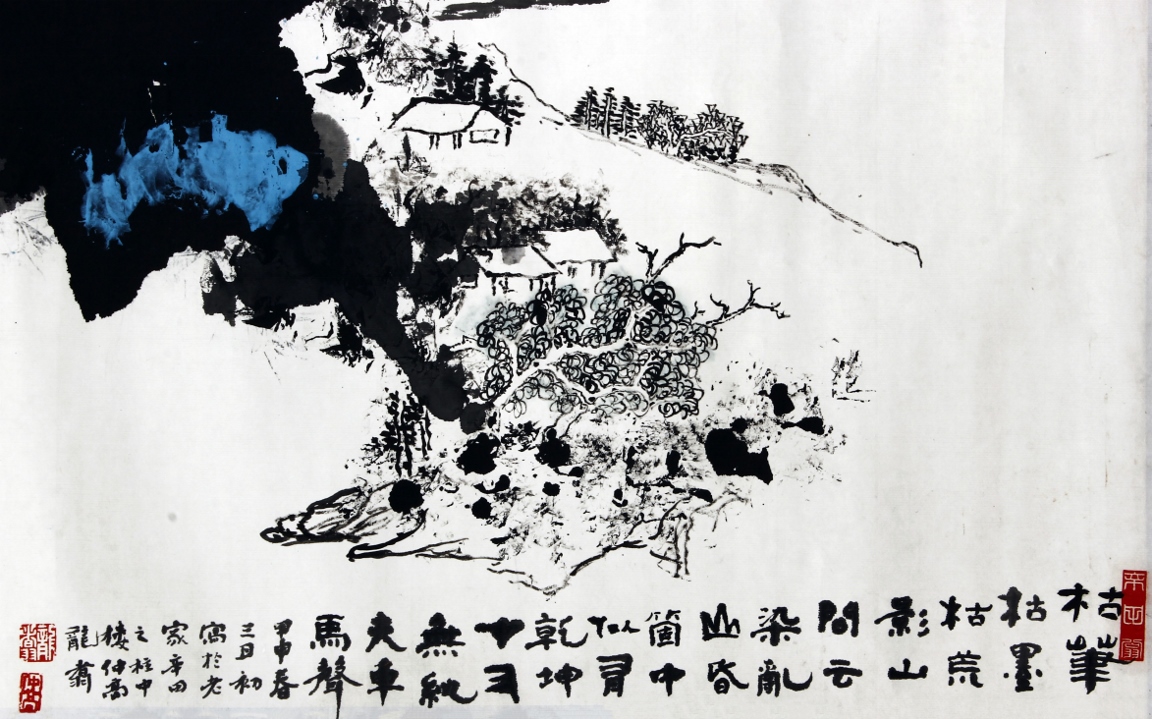 枯筆
枯墨
枯荒
影山
間云
染亂
山昏
箇中
似尋
乾坤
又
無
夫車
馬聲
甲申春
三日初
寫於老
家辛田
之柱中
樓仲高
龍翁